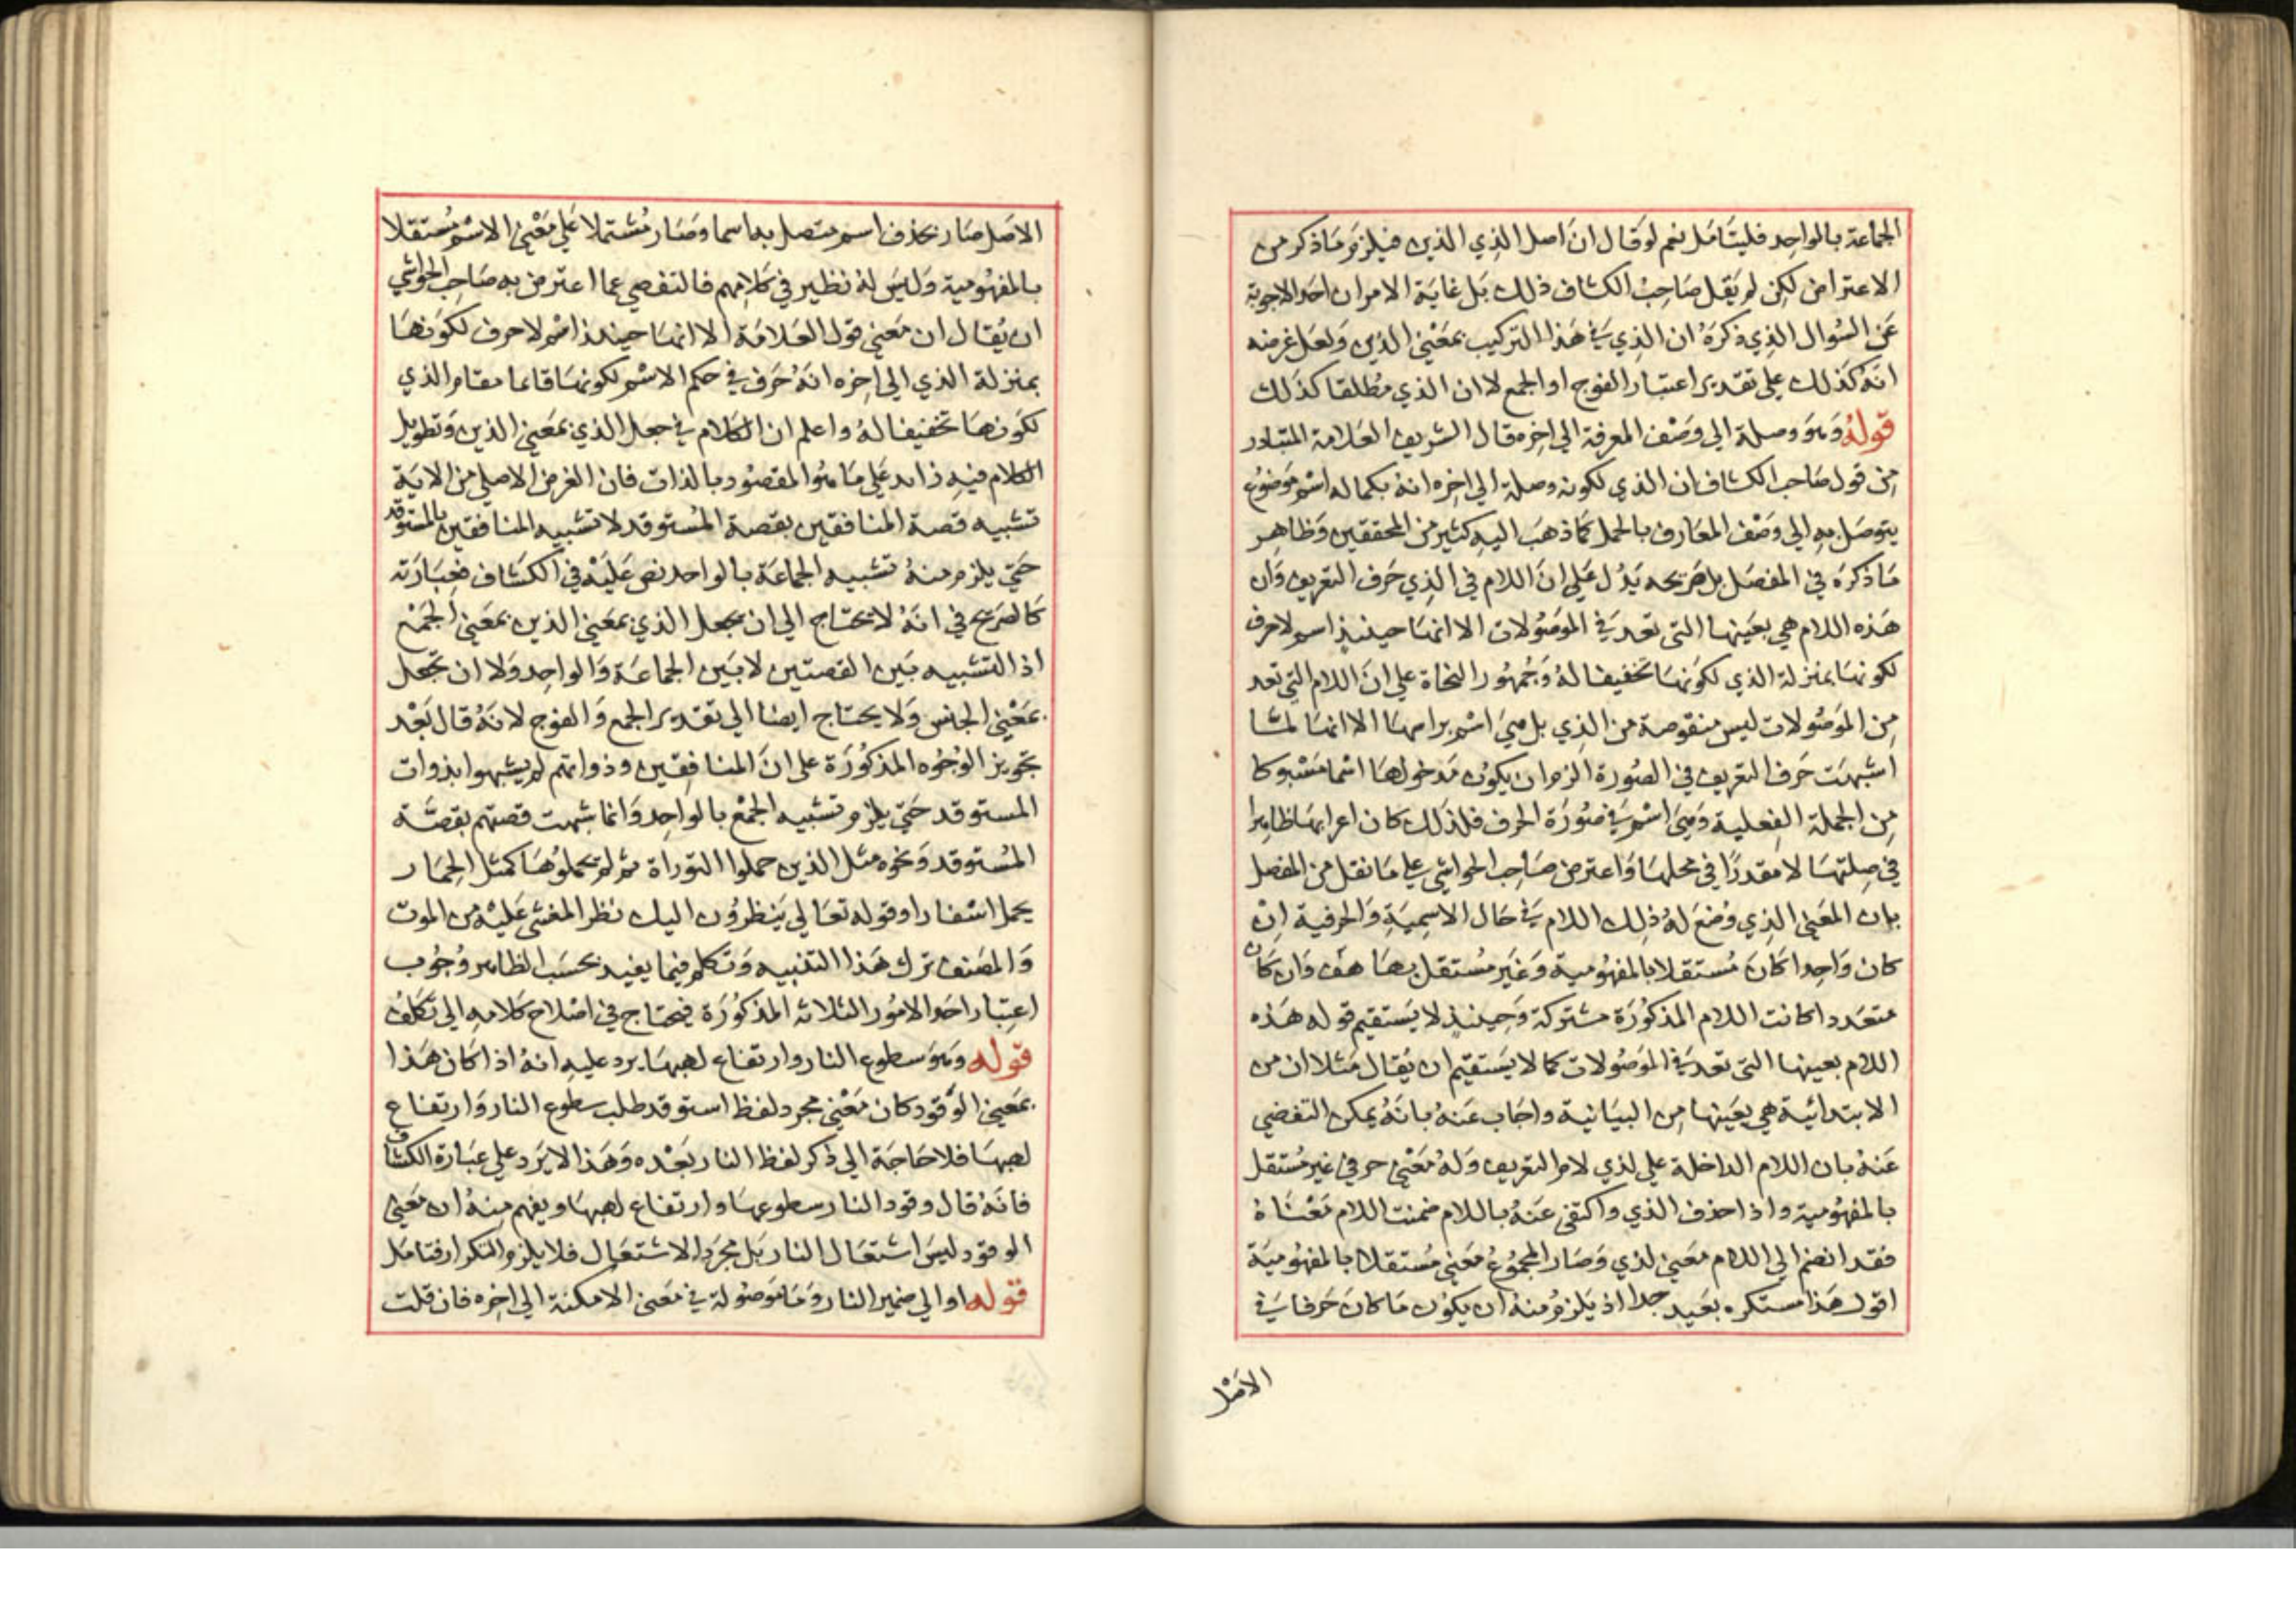 الجماعة بالواحد فليتأمل نعم لو قال ان اصل الذي الذين فيلزم ما ذكر من
الاعتراض لكن لم يقل صاحب الكشاف ذلك بل غاية الامر ان احد الاجوبة
عن السُوال الذي ذكرَهُ ان الذي في هذا التركيب بمعنى الذين ولعل غرضه
انه كذلك على تقدير اعتبار الفوج او الجمع لا ان الذي مطلقا كذلك
قوله وهو وصلة الي وصف المعرفة الي اخره قال الشريف العلامة المتبادر
من قول صاحب الكشاف ان الذي لكونه وصلة الي اخره انه بكماله اسم موضوع
يتوصل به الي وصف المعارف بالجمل كما ذهب اليه كثير من المحققين وظاهر
ما ذكره في المفصل بل صريحه يدل علي ان اللام في الذي حرف التعريف وان
هذه اللام هي بعينها التي تعد في الموصولات الا انها حينيذ اسم لا حرف
لكونها بمنزلة الذي لكونها تخفيفا له وجمهور النحاة علي ان اللام التي تعد
من الموصولات ليس منقوصة من الذي بل هي اسم براسها الا انها لما
اشبهت حرف التعريف في الصورة الزم ان يكون مدخولها اسما مسبوكا
من الجملة الفعلية وهي اسم في صورة الحرف فلذلك كان اعرابها ظاهرا
في صلتها لا مقدرًا في محلها واعترض صاحب الحواشي علي ما نقل من المفصل
بان المعني الذي وضع له ذلك اللام في حال الاسمية والحرفية ان
كان واحدا كان مستقلا بالمفهومية وغير مستقل بها هف وان كان
متعددا كانت اللام المذكورة مشتركة وحينيذ لا يستقيم قوله هذه
اللام بعينها التي تعد في الموصولات كما لا يستقيم ان يقال مثلا ان من
الابتدائية هي بعينها من البيانية واجاب عنه بانه يمكن التفصي
عنه بان اللام الداخلة علي لذي لام التعريف وله معني حرفي غير مستقل
بالمفهومية واذا حذف الذي واكتفي عنه باللام ضمنت اللام معناه
فقد انضم الي اللام معني لذي وصار المجموع معني مستقلا بالمفهومية
اقول هذا مستكره بعيد جدا اذ يلزم منه ان يكون ما كان حرفا في
الاصل
الاصل صار بحذف اسم متصل به اسما وصار مشتملا علي معني الاسم مستقلا
بالمفهومية وليس له نظير في كلامهم فالتفصي عما اعترض به صاحب الحواشي
ان يقال ان معني قول العلامة الا انها حينئذ اسم لا حرف لكونها
بمنزلة الذي الي اخره انه حرف في حكم الاسم لكونها قايما مقام الذي
لكونها تخفيفا له واعلم ان الكلام في جعل الذي بمعني الذين وتطويل
الكلام فيه زايد علي ما هو المقصود بالذات فان الغرض الاصلي من الاية
تشبيه قصة المنافقين بقصة المستوقد لا تشبيه المنافقين بالمستوقد
حتي يلزم منه تشبيه الجماعة بالواحد نص عليه في الكشاف فعبارته
كالصريح في انه لا يحتاج الي ان يجعل الذي بمعني الذين بمعني الجمع
اذ التشبيه بين القصتين لا بين الجماعة والواحد ولا ان تجعل
بمعني الجنس ولا يحتاج ايضا الي تقدير الجمع والفوج لانه قال بعد
تجويز الوجوه المذكورة علي ان المنافقين وذواتهم لم يشبهوا بذوات
المستوقد حتي يلزم تشبيه الجمع بالواحد وانما شبهت قصتهم بقصة
المستوقد ونحوه مثل الذين حملوا التوراة ثم لم يحملوها كمثل الحمار
يحمل اسفارا وقوله تعالي ينظرون اليك نظر المغشي عليه من الموت
والمصنف ترك هذا التنبيه وتكلم فيما يفيد بحسب الظاهر وجوب
اعتبار احد الامور الثلاثه المذكورة فيحتاج في اصلاح كلامه الي تكلف
قوله وهو سطوع النار وارتفاع لهبها يرد عليه انه اذا كان هذا
بمعني الوقود كان معني مجرد لفظ استوقد طلب سطوع النار وارتفاع
لهبها فلا حاجة الي ذكر لفظ النار بعده وهذا لا يرد علي عبارة الكشاف
فانه قال وقود النار سطوعها وارتفاع لهبها ويفهم منه ان معني
الوقود ليس اشتعال النار بل مجرد الاشتعال فلا يلزم التكرار فتامل
قوله او الي ضمير النار وما موصولة في معني الامكنة الي اخره فان قلت